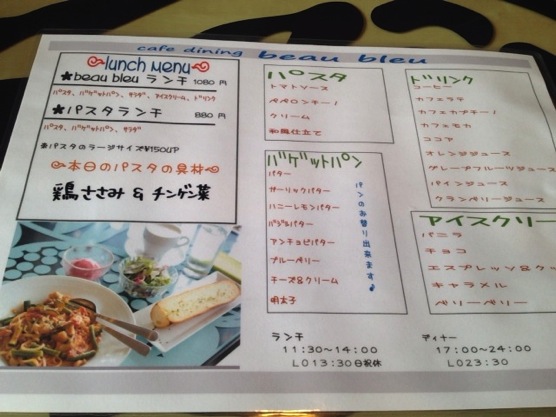 cafe dining beau bleu
lunch Menu
★beau bleu ランチ 1080 円
パスタ、バゲットパン、サラダ、アイスクリーム、ドリンク
★パスタランチ 880 円
パスタ、バゲットパン、サラダ
※パスタのラージサイズ¥150UP
本日のパスタの具材
鶏ささみ & チンゲン菜
パスタ
トマトソース
ペペロンチーノ
クリーム
和風仕立て
バゲットパン
バター
ガーリックバター
ハニーレモンバター
バジルバター
アンチョビバター
ブルーベリー
チーズ&クリーム
明太子
パンのみ替り出来ます♪
ドリンク
コーヒー
カフェラテ
カフェカプチーノ
カフェモカ
ココア
オレンジジュース
グレープフルーツジュース
パインジュース
クランベリージュース
アイスクリー
バニラ
チョコ
エスプレッソ&ク
キャラメル
ベリーベリー
ランチ
11:30〜14:00
LO13:30日祝休
ディナー
17:00〜24:00
LO23:30